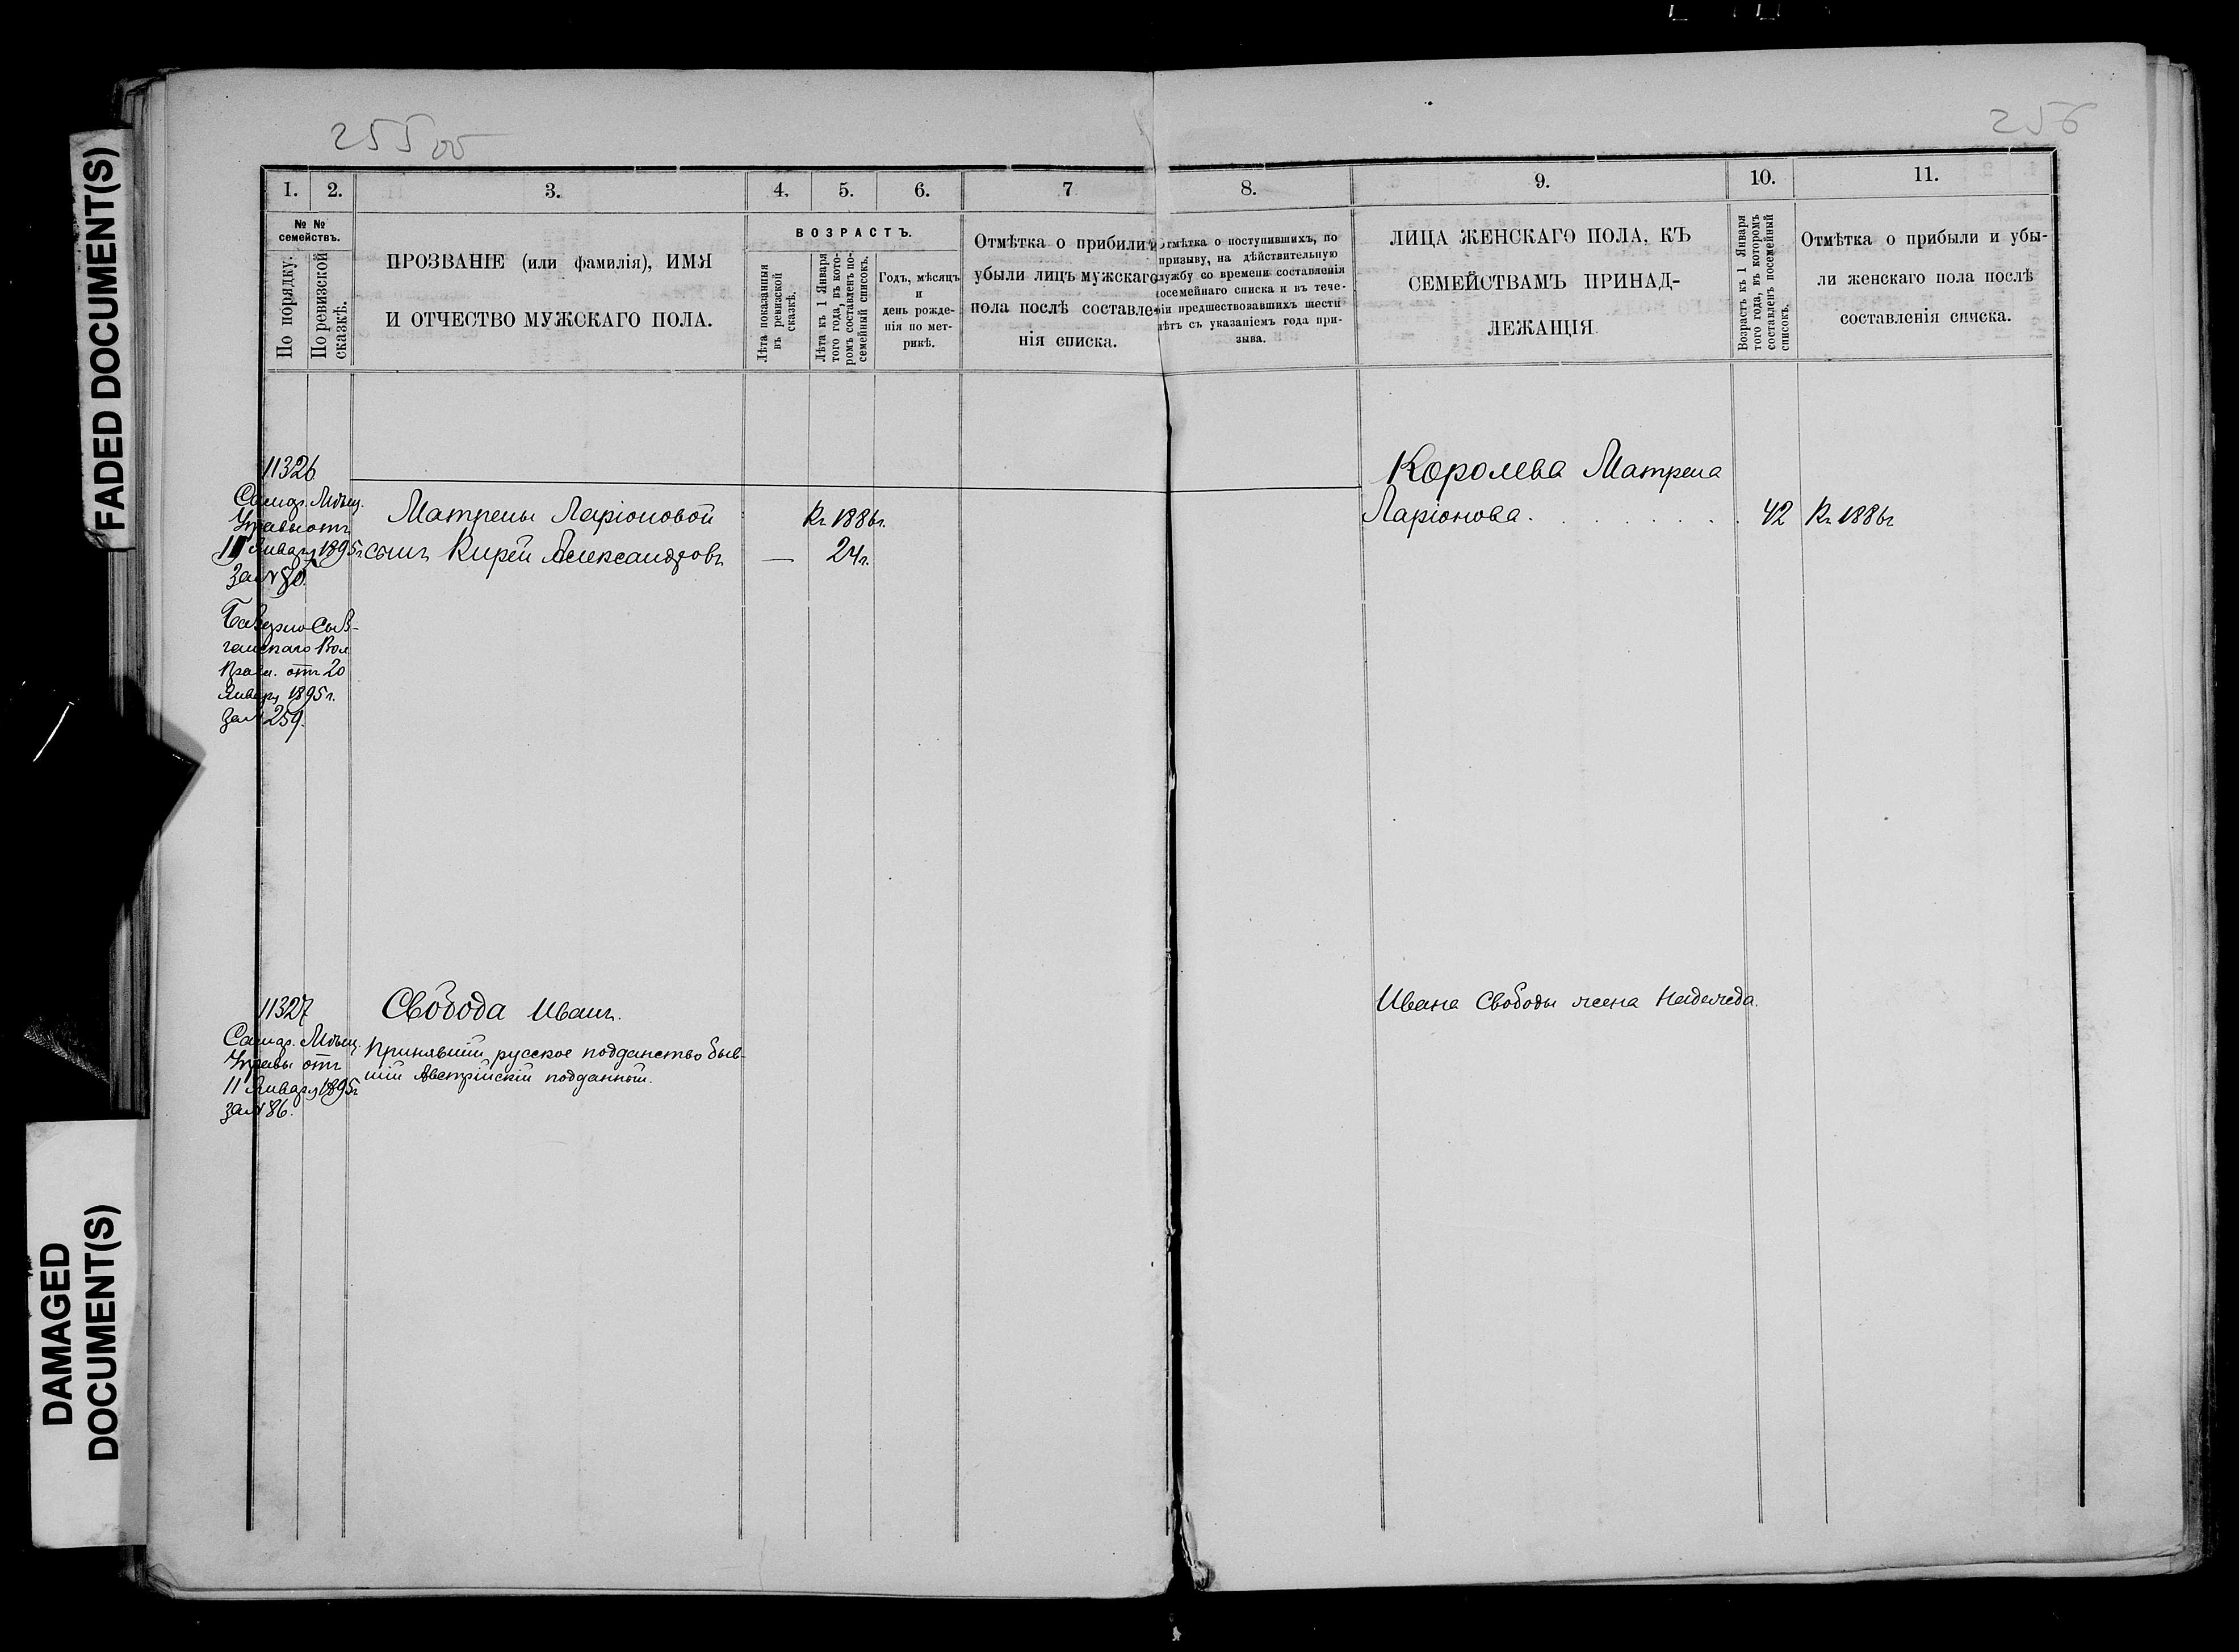 FADED DOCUMENT(S)
DAMAGED
DOCUMENT(S)
255 об
256
1.
2.
3.
4.
5.
6.
7
8.
9.
10.
11.
№ №
семействъ.
По порядку.
По ревизской
сказкѣ.
ПРОЗВАНІЕ (или фамилія), ИМЯ
И ОТЧЕСТВО МУЖСКАГО ПОЛА.
ВОЗРАСТЪ.
Лѣта показанія
въ ревизской
сказкѣ.
Лѣта къ 1 Января
того года, въ кото-
ромъ составленъ по-
семейный списокъ.
Годъ, мѣсяцъ
и
день рожде-
нія по мет-
рикѣ.
Отмѣтка о прибили и
убыли лицъ мужскаго
пола послѣ составле-
нія списка.
Отмѣтка о поступившихъ, по
призыву, на дѣйствительную
лужбу со времени составленія
осемейнаго списка и въ тече-
іи предшествовавшихъ шести
лѣтъ съ указаніемъ года при-
зыва.
ЛИЦА ЖЕНСКАГО ПОЛА, КЪ
СЕМЕЙСТВАМЪ ПРИНАД-
ЛЕЖАЩІЯ
Возрастъ къ 1 Января
того года, въ которомъ
составленъ посемейный
списокъ.
Отмѣтка о прибыли и убы-
ли женскаго пола послѣ
составленія списка.
11326
Самар. Мѣщ.
Управы отъ
11 Января 1895 г.
за № 80.
Базарно-Сыз-
ганскаго Вол
Правл. отъ 20
Января 1895 г.
за № 259.
Матрены Ларіоновой
сынъ Кирей Александровъ
Къ 1886 г.
— 24 г.
Королева Матрена
Ларіонова . . . . . . . 42 Къ 1886 г
11327
Самар. Мѣщ.
Управы отъ
11 Января 1895 г
за № 86.
Свобода Иванъ.
Принявшій русское подданство быв-
шій Австрійскій подданный.
Ивана Свободы жена Надежда.